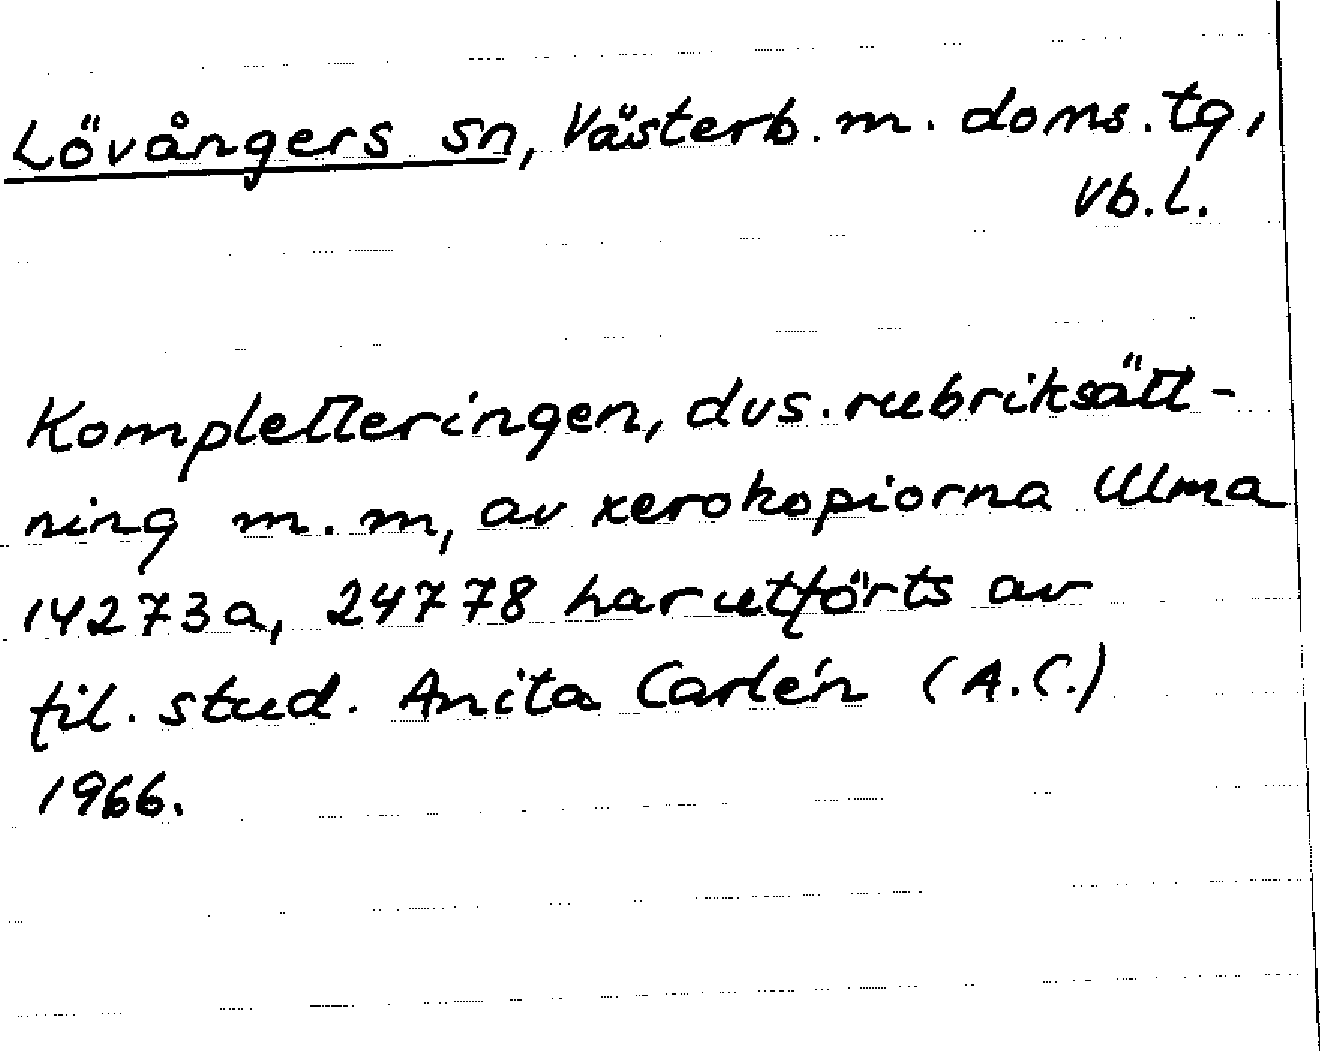 Lövångers sn, Västerb. m. doms. tg,
Vb.l.
Kompletteringen, dvs. rubriksätt-
ning m.m, av xerokopiorna Ulma
14273a, 24778 har utförts av
fil. stud. Anita Carlén (A.C.)
1966.